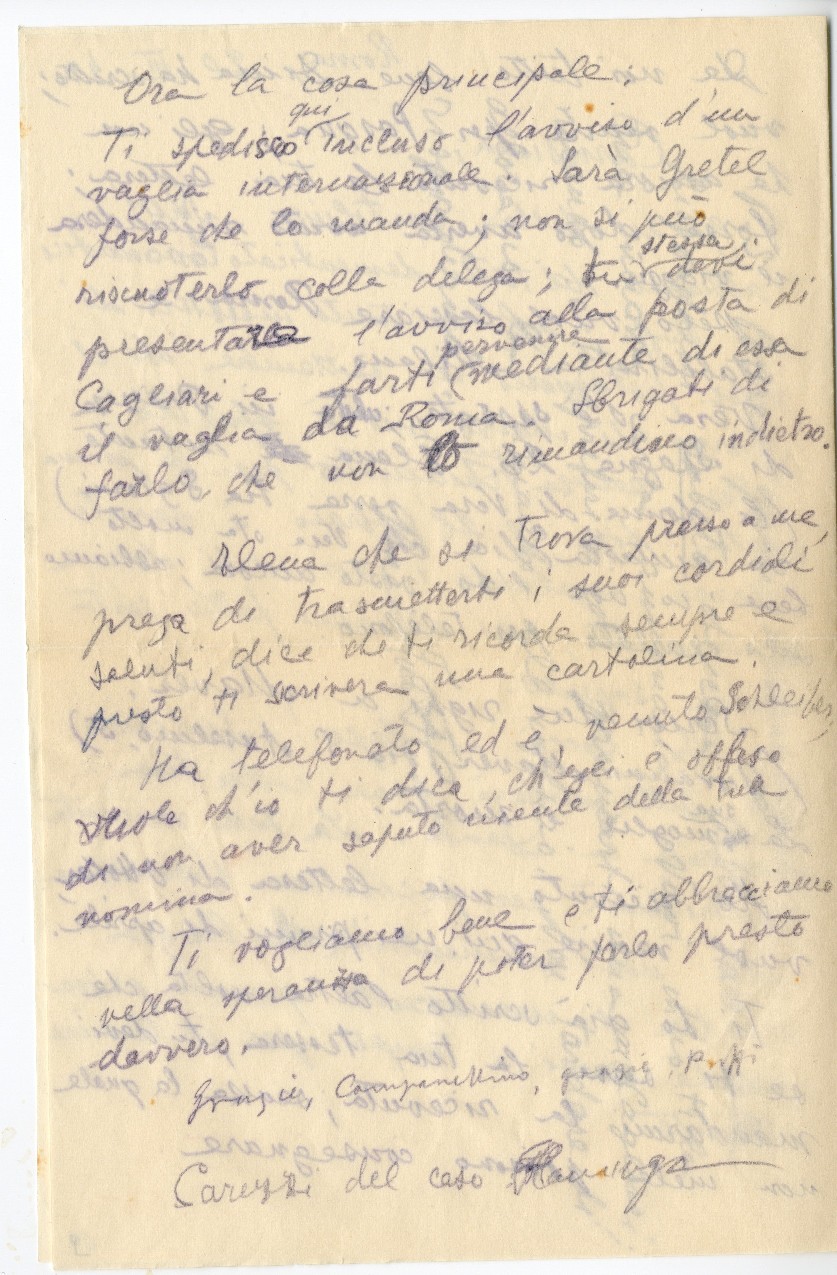 Ora la cosa principale:
Ti spedisco qui incluso l'avviso d'un
vaglia internazionale. Sarà Gretel
forse che lo manda; non si può
riscuoterlo colla delega; tu stessa devi
presentare l'avviso alla posta di
Cagliari e farti pervenire mediante di essa
il vaglia da Roma. Sbrigati di
farlo, che non lo rimandino indietro.
Elena che si trova presso a me,
prega di trasmetterti i suoi cordiali
saluti, dice che ti ricorda sempre e
presto ti scriverà una cartolina.
Ha telefonato ed è venuto Schleiber,
vuole ch'io ti dica, ch'egli è offeso
di non aver saputo niente della tua
nomina.
Ti vogliamo bene e ti abbracciamo
nella speranza di poter farlo presto
davvero.
Carezzi del caso